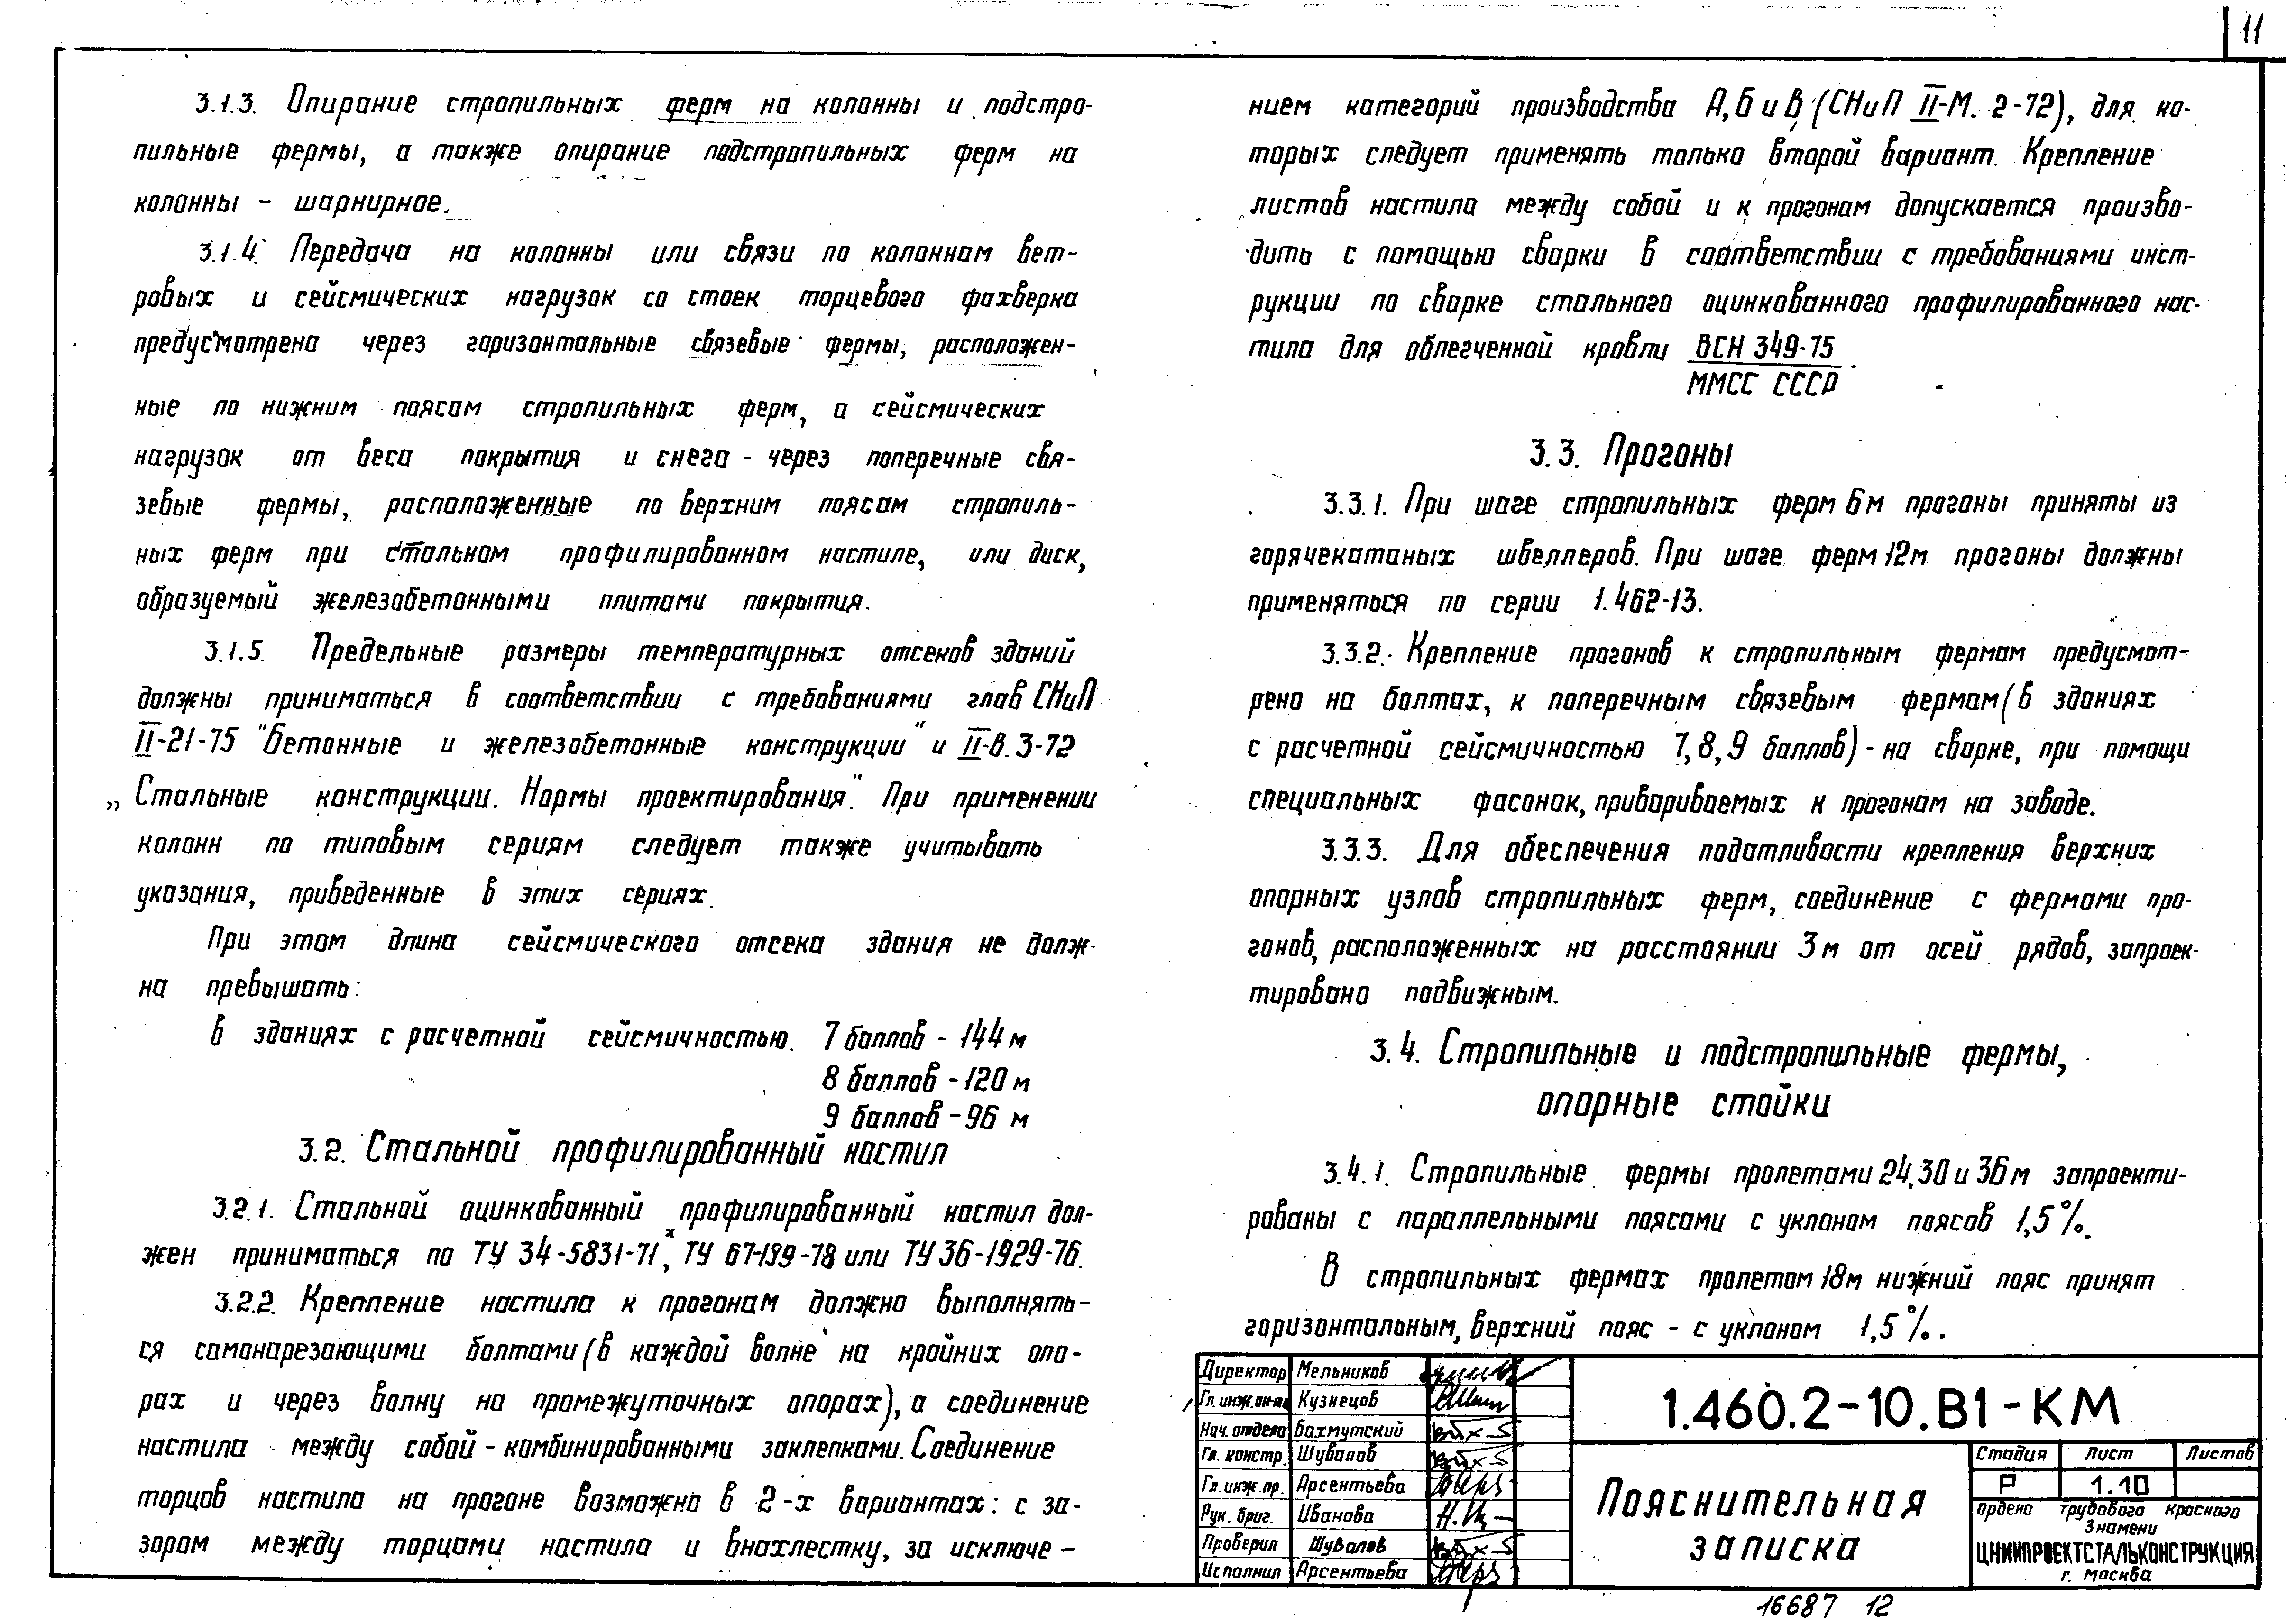 11
3.1.3. Опирание стропильных ферм на колонны и подстро-
пильные фермы, а также опирание подстропильных ферм на
колонны - шарнирное.
3.1.4. Передача на колонны или связи по колоннам вет-
ровых и сейсмических нагрузок со стоек торцевого фахверка
предусмотрена через горизонтальные связевые фермы, расположен-
ные по нижним поясам стропильных ферм, а сейсмических
нагрузок от веса покрытия и снега - через поперечные свя-
зевые фермы, расположенные по верхним поясам стропиль-
ных ферм при стальном профилированном настиле, или диск,
образуемый железобетонными плитами покрытия.
3.1.5. Предельные размеры температурных отсеков зданий
должны приниматься в соответствии с требованиями глав СНиП
II-21-75 "Бетонные и железобетонные конструкции" и II-В.3-72
„Стальные конструкции. Нормы проектирования". При применении
колонн по типовым сериям следует также учитывать
указания, приведенные в этих сериях.
При этом длина сейсмического отсека здания не долж-
на превышать:
в зданиях с расчетной сейсмичностью. 7 баллов - 144 м
8 баллов - 120 м
9 баллов - 96 м
3.2. Стальной профилированный настил
3.2.1. Стальной оцинкованный профилированный настил дол-
жен приниматься по ТУ 34-5831-71ˣ, ТУ 67-199-78 или ТУ 36-1929-76.
3.2.2. Крепление настила к прогонам должно выполнять-
ся самонарезающими болтами (в каждой волне на крайних опо-
рах и через волну на промежуточных опорах), а соединение
настила между собой - комбинированными заклепками. Соединение
торцов настила на прогоне возможно в 2-х вариантах: с за-
зором между торцами настила и внахлестку, за исключе-
нием категорий производства А, Б и В (СНиП II-М. 2-72), для ко-
торых следует применять только второй вариант. Крепление
листов настила между собой и к прогонам допускается произво-
дить с помощью сварки в соответствии с требованиями инст-
рукции по сварке стального оцинкованного профилированного нас-
тила для облегченной кровли ВСН 349-75
ММСС СССР
3.3. Прогоны
3.3.1. При шаге стропильных ферм 6 м прогоны приняты из
горячекатаных швеллеров. При шаге ферм 12 м прогоны должны
применяться по серии 1.462-13.
3.3.2. Крепление прогонов к стропильным фермам предусмот-
рено на болтах, к поперечным связевым фермам (в зданиях
с расчетной сейсмичностью 7, 8, 9 баллов) - на сварке, при помощи
специальных фасонок, привариваемых к прогонам на заводе.
3.3.3. Для обеспечения податливости крепления верхних
опорных узлов стропильных ферм, соединение с фермами про-
гонов, расположенных на расстоянии 3 м от осей рядов, запроек-
тировано подвижным.
3.4. Стропильные и подстропильные фермы,
опорные стойки
3.4.1. Стропильные фермы пролетами 24, 30 и 36 м запроекти-
рованы с параллельными поясами с уклоном поясов 1,5 %.
В стропильных фермах пролетом 18 м нижний пояс принят
горизонтальным, верхний пояс - с уклоном 1,5 %.
Директор Мельников
Гл. инж. ин-та Кузнецов
Нач. отдела Бахмутский
Гл. констр. Шувалов
Гл. инж. пр. Арсентьева
Рук. бриг. Иванова
Проверил Шувалов
Исполнил Арсентьева
1.460.2-10.В1-КМ
Пояснительная
записка
Стадия Лист Листов
Р 1.10
Ордена Трудового Красного
Знамени
ЦНИИПРОЕКТСТАЛЬКОНСТРУКЦИЯ
г. Москва
16687 12